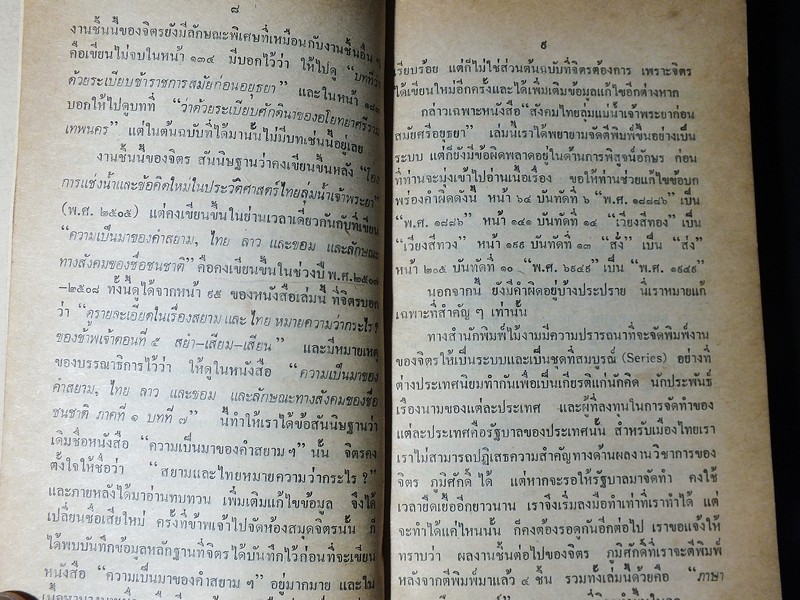 ๘
งานชิ้นนี้ของจิตรยังมีลักษณะพิเศษที่เหมือนกับงานชิ้นอื่น ๆ
คือเขียนไม่จบในหน้า ๑๓๔ มีบอกไว้ว่า ให้ไปดู “บทที่ว่า
ด้วยระเบียบข้าราชการสมัยก่อนอยุธยา” และในหน้า
บอกให้ไปดูบทที่ “ว่าด้วยระเบียบศักดินาของอโยทยาศรีราม
เทพนคร” แต่ในต้นฉบับที่ได้มานั้นไม่มีบทเช่นนี้อยู่เลย
งานชิ้นนี้ของจิตร สันนิษฐานว่าคงเขียนขึ้นหลัง “โอง
การแช่งน้ำและข้อคิดใหม่ในประวัติศาสตร์ไทยลุ่มน้ำเจ้าพระยา”
(พ.ศ. ๒๕๐๕) แต่คงเขียนขึ้นในย่านเวลาเดียวกันกับที่เขียน
“ความเป็นมาของคำสยาม, ไทย ลาว และขอม และลักษณะ
ทางสังคมของชื่อชนชาติ” คือคงเขียนขึ้นในช่วงปี พ.ศ.
–๒๕๐๘ ทั้งนี้ดูได้จากหน้า ๙๕ ของหนังสือเล่มนี้ ที่จิตรบอก
ว่า “ดูรายละเอียดในเรื่องสยาม และ ไทย หมายความว่ากระไร ?
ของข้าพเจ้าตอนที่ ๕ สยำ–เสียม–เสียน” และมีหมายเหตุ
ของบรรณาธิการไว้ว่า ให้ดูในหนังสือ “ความเป็นมาของ
คำสยาม, ไทย ลาว และขอม และลักษณะทางสังคมของชื่อ
ชนชาติ ภาคที่ ๑ บทที่ ๗” นี้ทำให้เราได้ข้อสันนิษฐานว่า
เดิมชื่อหนังสือ “ความเป็นมาของคำสยาม ๆ” นั้น จิตรคง
ตั้งใจให้ชื่อว่า “สยามและไทยหมายความว่ากระไร ?”
และภายหลังได้มาอ่านทบทวน เพิ่มเติมแก้ไขข้อมูล จึงได้
เปลี่ยนชื่อเสียใหม่ ครั้งที่ข้าพเจ้าไปจัดห้องสมุดจิตรนั้น ก็
ได้พบบันทึกข้อมูลหลักฐานที่จิตรได้บันทึกไว้ก่อนที่จะเขียน
หนังสือ “ความเป็นมาของคำสยาม ๆ” อยู่มากมาย และใน
๙
เรียบร้อย แต่ก็ไม่ใช่ส่วนต้นฉบับที่จิตรต้องการ เพราะจิตร
ได้เขียนใหม่อีกครั้งและได้เพิ่มเติมข้อมูลแก้ไขอีกต่างหาก
กล่าวเฉพาะหนังสือ “สังคมไทยลุ่มแม่น้ำเจ้าพระยาก่อน
สมัยศรีอยุธยา” เล่มนี้เราได้พยายามจัดตีพิมพ์ขึ้นอย่างเป็น
ระบบ แต่ก็ยังมีข้อผิดพลาดอยู่ในด้านการพิสูจน์อักษร ก่อน
ที่ท่านจะมุ่งเข้าไปอ่านเนื้อเรื่อง ขอให้ท่านช่วยแก้ไขข้อบก
พร่องคำผิดดังนี้ หน้า ๖๔ บันทัดที่ ๖ “พ.ศ. ๑๘๘๘๖” เป็น
“พ.ศ. ๑๘๘๖” หน้า ๑๔๑ บันทัดที่ ๑๔ “เวียงสีทอง” เป็น
“เวียงสีทวง” หน้า ๑๙๙ บันทัดที่ ๑๓ “สั่ง” เป็น “ส่ง”
หน้า ๒๐๕ บันทัดที่ ๑๐ “พ.ศ. ๖๙๔๙” เป็น “พ.ศ. ๑๙๔๙”
นอกจากนี้ ยังมีคำผิดอยู่บ้างประปราย นี่เราหมายแก้
เฉพาะที่สำคัญ ๆ เท่านั้น
ทางสำนักพิมพ์ไม้งามมีความปรารถนาที่จะจัดพิมพ์งาน
ของจิตรให้เป็นระบบและเป็นชุดที่สมบูรณ์ (Series) อย่างที่
ต่างประเทศนิยมทำกันเพื่อเป็นเกียรติแก่นักคิด นักประพันธ์
เรืองนามของแต่ละประเทศ และผู้ที่ลงทุนในการจัดทำของ
แต่ละประเทศคือรัฐบาลของประเทศนั้น สำหรับเมืองไทยเรา
เราไม่สามารถปฏิเสธความสำคัญทางด้านผลงานวิชาการของ
จิตร ภูมิศักดิ์ ได้ แต่หากจะรอให้รัฐบาลมาจัดทำ คงใช้
เวลายืดเยื้ออีกยาวนาน เราจึงเริ่มลงมือทำเท่าที่เราทำได้ แต่
จะทำได้แค่ไหนนั้น ก็คงต้องรอดูกันอีกต่อไป เราขอแจ้งให้
ทราบว่า ผลงานชิ้นต่อไปของจิตร ภูมิศักดิ์ที่เราจะตีพิมพ์
หลังจากตีพิมพ์มาแล้ว ๔ ชิ้น รวมทั้งเล่มนี้ด้วยคือ “ภาษา